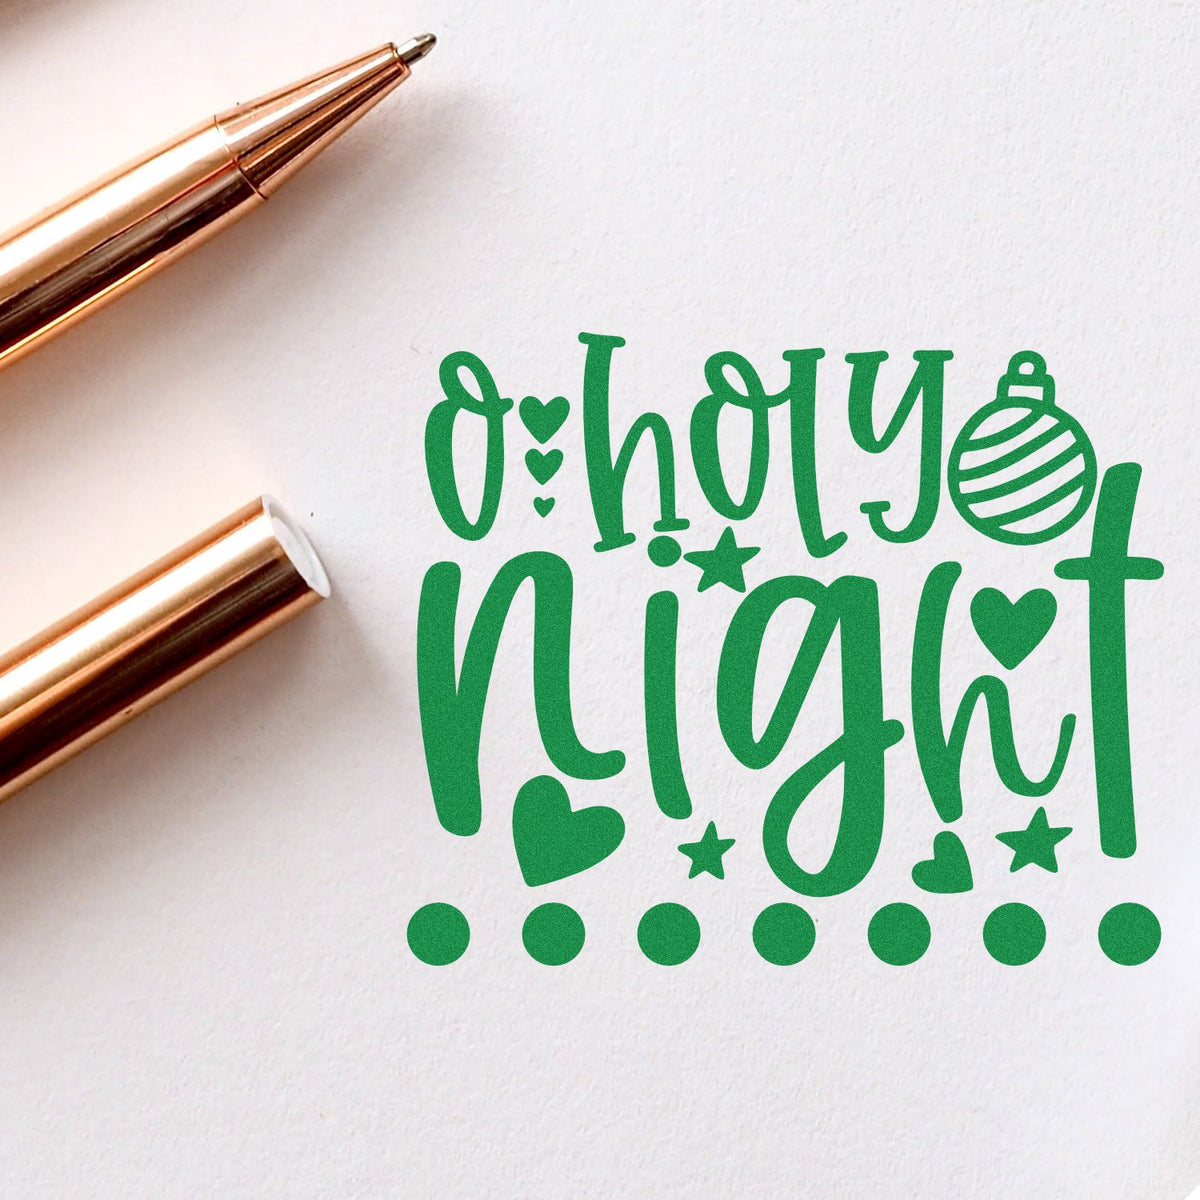 o holy
night